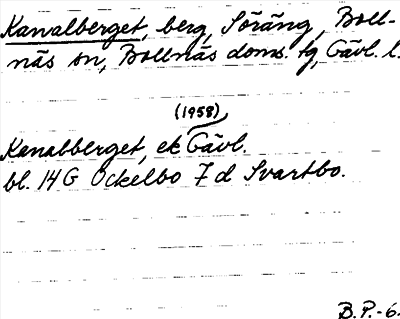 Kanalberget, berg, Söräng, Boll-
näs sn, Bollnäs doms. tg, Gävl. l.
(1958)
Kanalberget, ek Gävl.
bl. 14G Ockelbo 7d Svartbo.
B.P.-6.